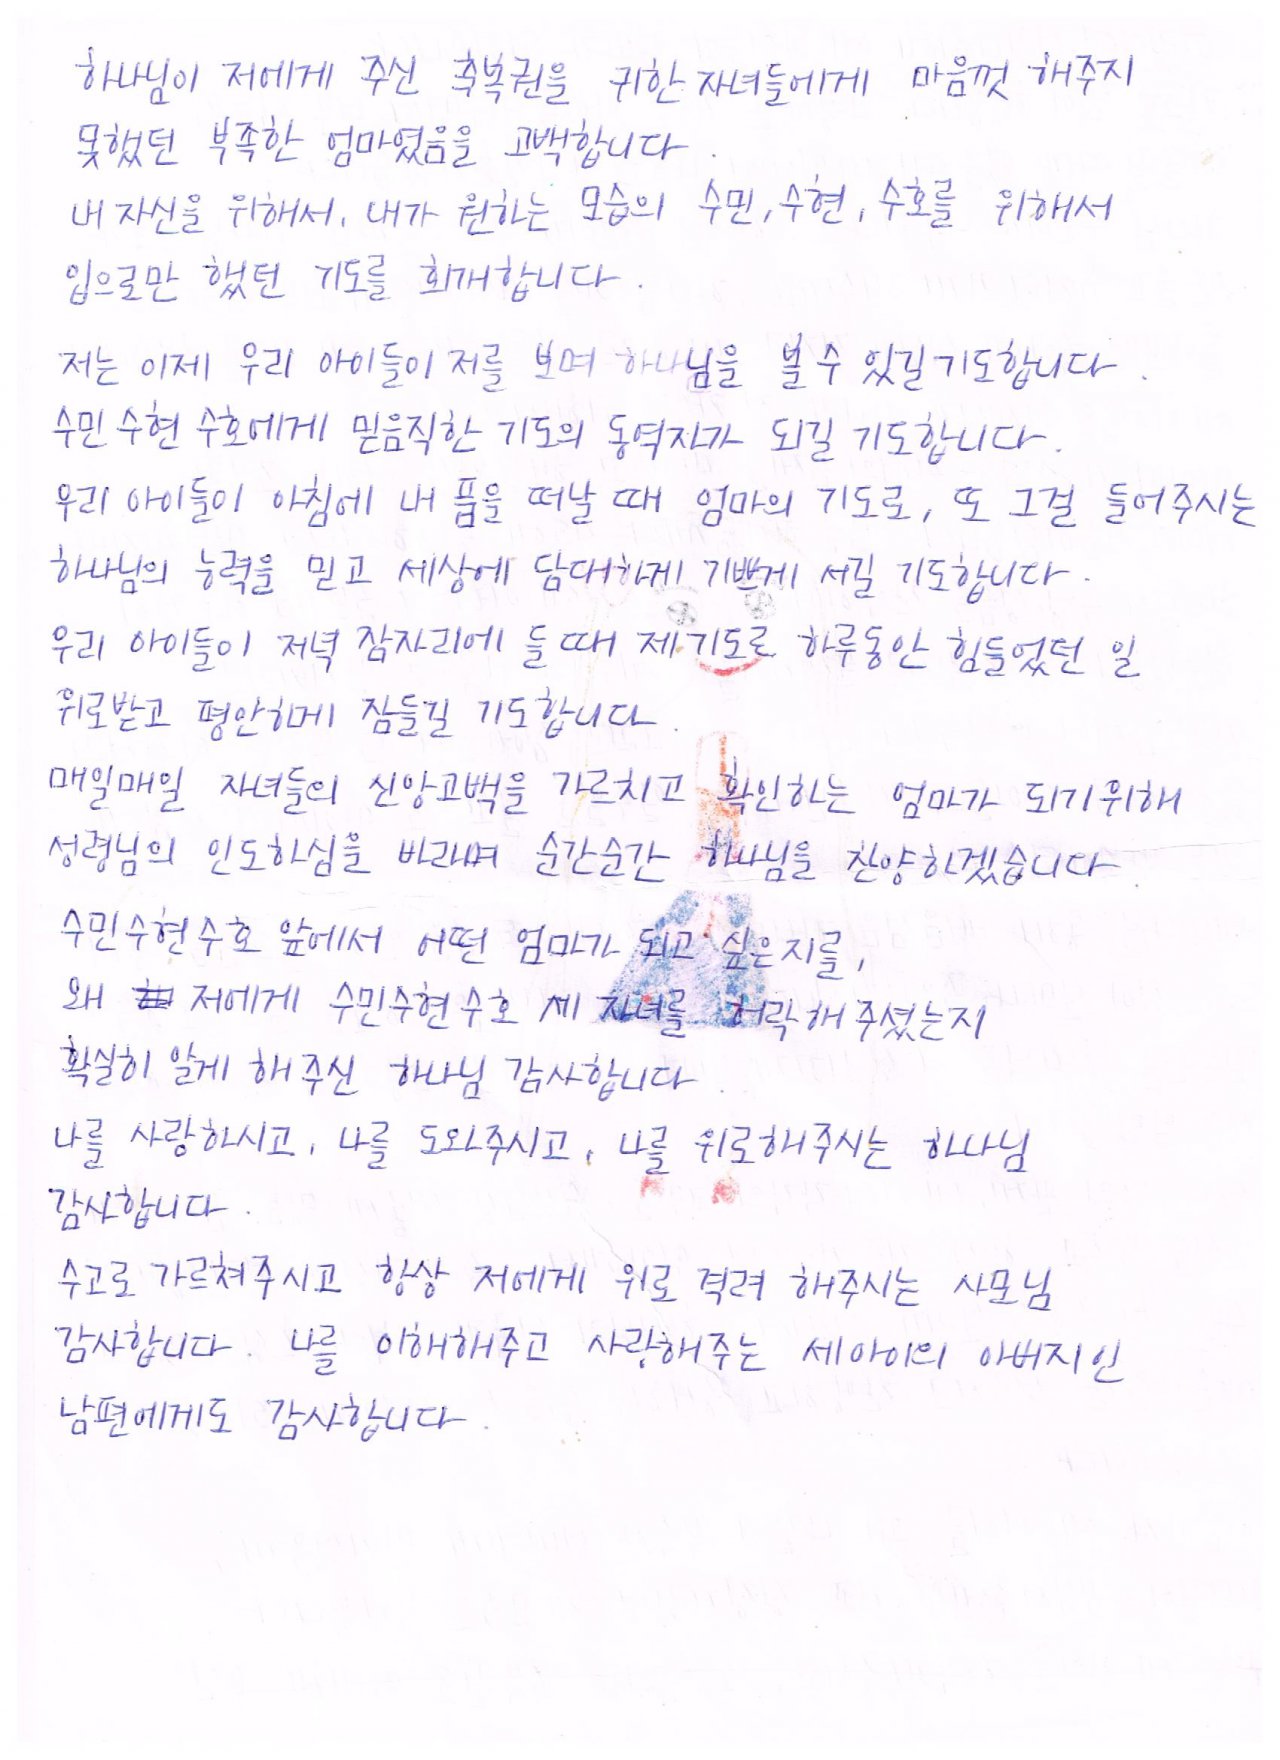 하나님이 저에게 주신 축복권을 귀한 자녀들에게 마음껏 해주지
못했던 부족한 엄마였음을 고백합니다.
내 자신을 위해서, 내가 원하는 모습의 수민, 수현, 수호를 위해서
입으로만 했던 기도를 회개합니다.
저는 이제 우리 아이들이 저를 보며 하나님을 볼 수 있길 기도합니다.
수민 수현 수호에게 믿음직한 기도의 동역자가 되길 기도합니다.
우리 아이들이 아침에 내 품을 떠날 때 엄마의 기도로, 또 그걸 들어주시는
하나님의 능력을 믿고 세상에 담대하게 기쁘게 서길 기도합니다.
우리 아이들이 저녁 잠자리에 들 때 제 기도로 하루동안 힘들었던 일
위로받고 평안하게 잠들길 기도합니다.
매일매일 자녀들의 신앙고백을 가르치고 확인하는 엄마가 되기위해
성령님의 인도하심을 바라며 순간순간 하나님을 찬양하겠습니다.
수민수현수호 앞에서 어떤 엄마가 되고 싶은지를,
왜 저에게 수민수현수호 세 자녀를 허락해주셨는지
확실히 알게 해주신 하나님 감사합니다.
나를 사랑하시고, 나를 도와주시고, 나를 위로해주시는 하나님
감사합니다.
수고로 가르쳐주시고 항상 저에게 위로 격려 해주시는 사모님
감사합니다. 나를 이해해주고 사랑해주는 세아이의 아버지인
남편에게도 감사합니다.